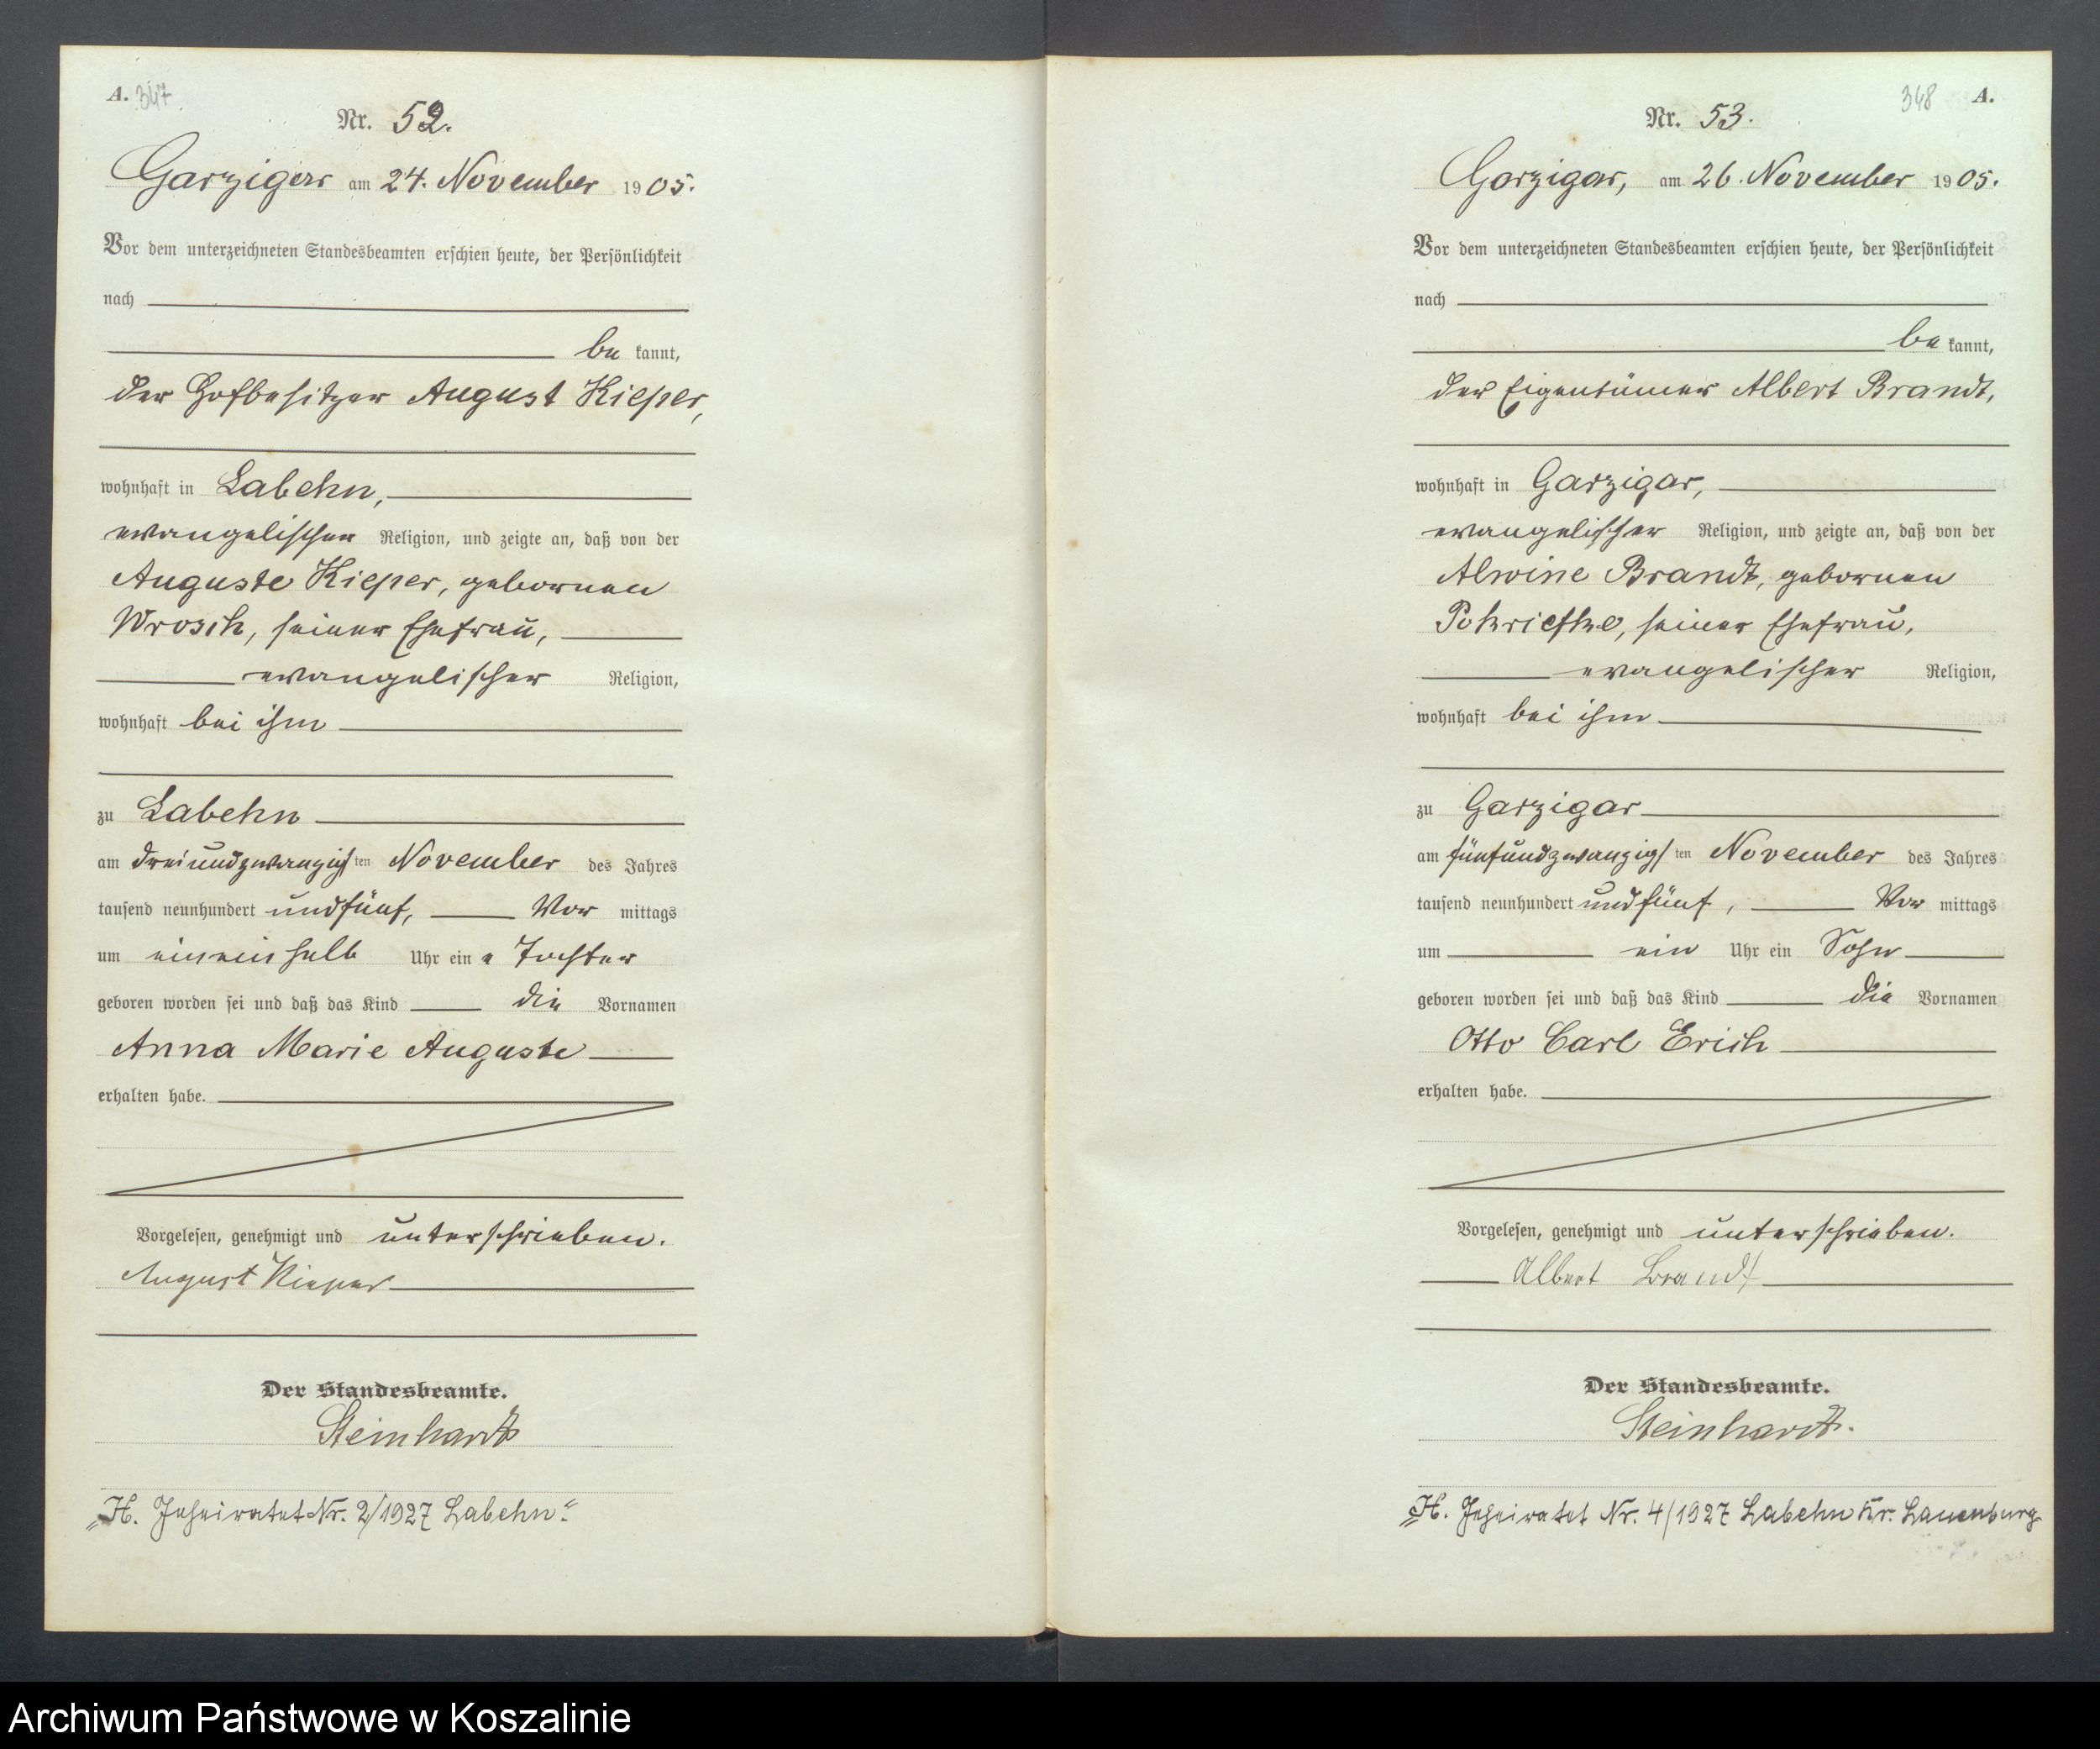 A. 347
Nr. 52.
Garzigar am 24. November 1905.
Vor dem unterzeichneten Standesbeamten erschien heute, der Persönlichkeit
nach
be kannt,
der Hofbesitzer August Kieper,
wohnhaft in Labehn,
evangelischer Religion, und zeigte an, daß von der
Auguste Kieper, gebornen
Wrosch, seiner Ehefrau,
evangelischer Religion,
wohnhaft bei ihm
zu Labehn
am dreiundzwanzigsten November des Jahres
tausend neunhundert undfünf, Vor mittags
um eineinhalb Uhr eine Tochter
geboren worden sei und daß das Kind die Vornamen
Anna Marie Auguste
erhalten habe.
Vorgelesen, genehmigt und unterschrieben.
August Kieper
Der Standesbeamte.
Steinhardt
„H. Geheiratet Nr. 2/1927 Labehn“
348 A.
Nr. 53.
Garzigar, am 26. November 1905.
Vor dem unterzeichneten Standesbeamten erschien heute, der Persönlichkeit
nach
be kannt,
der Eigentümer Albert Brandt,
wohnhaft in Garzigar,
evangelischer Religion, und zeigte an, daß von der
Alwine Brandt, gebornen
seiner Ehefrau,
evangelischer Religion,
wohnhaft bei ihm
zu Garzigar
am fünfundzwanzigsten November des Jahres
tausend neunhundert undfünf, Vor mittags
um ein Uhr ein Sohn
geboren worden sei und daß das Kind die Vornamen
Otto Carl Erich
erhalten habe.
Vorgelesen, genehmigt und unterschrieben.
Albert Brandt
Der Standesbeamte.
Steinhardt.
„H. Geheiratet Nr. 4/1927 Labehn Kr. Lauenburg
Archiwum Państwowe w Koszalinie